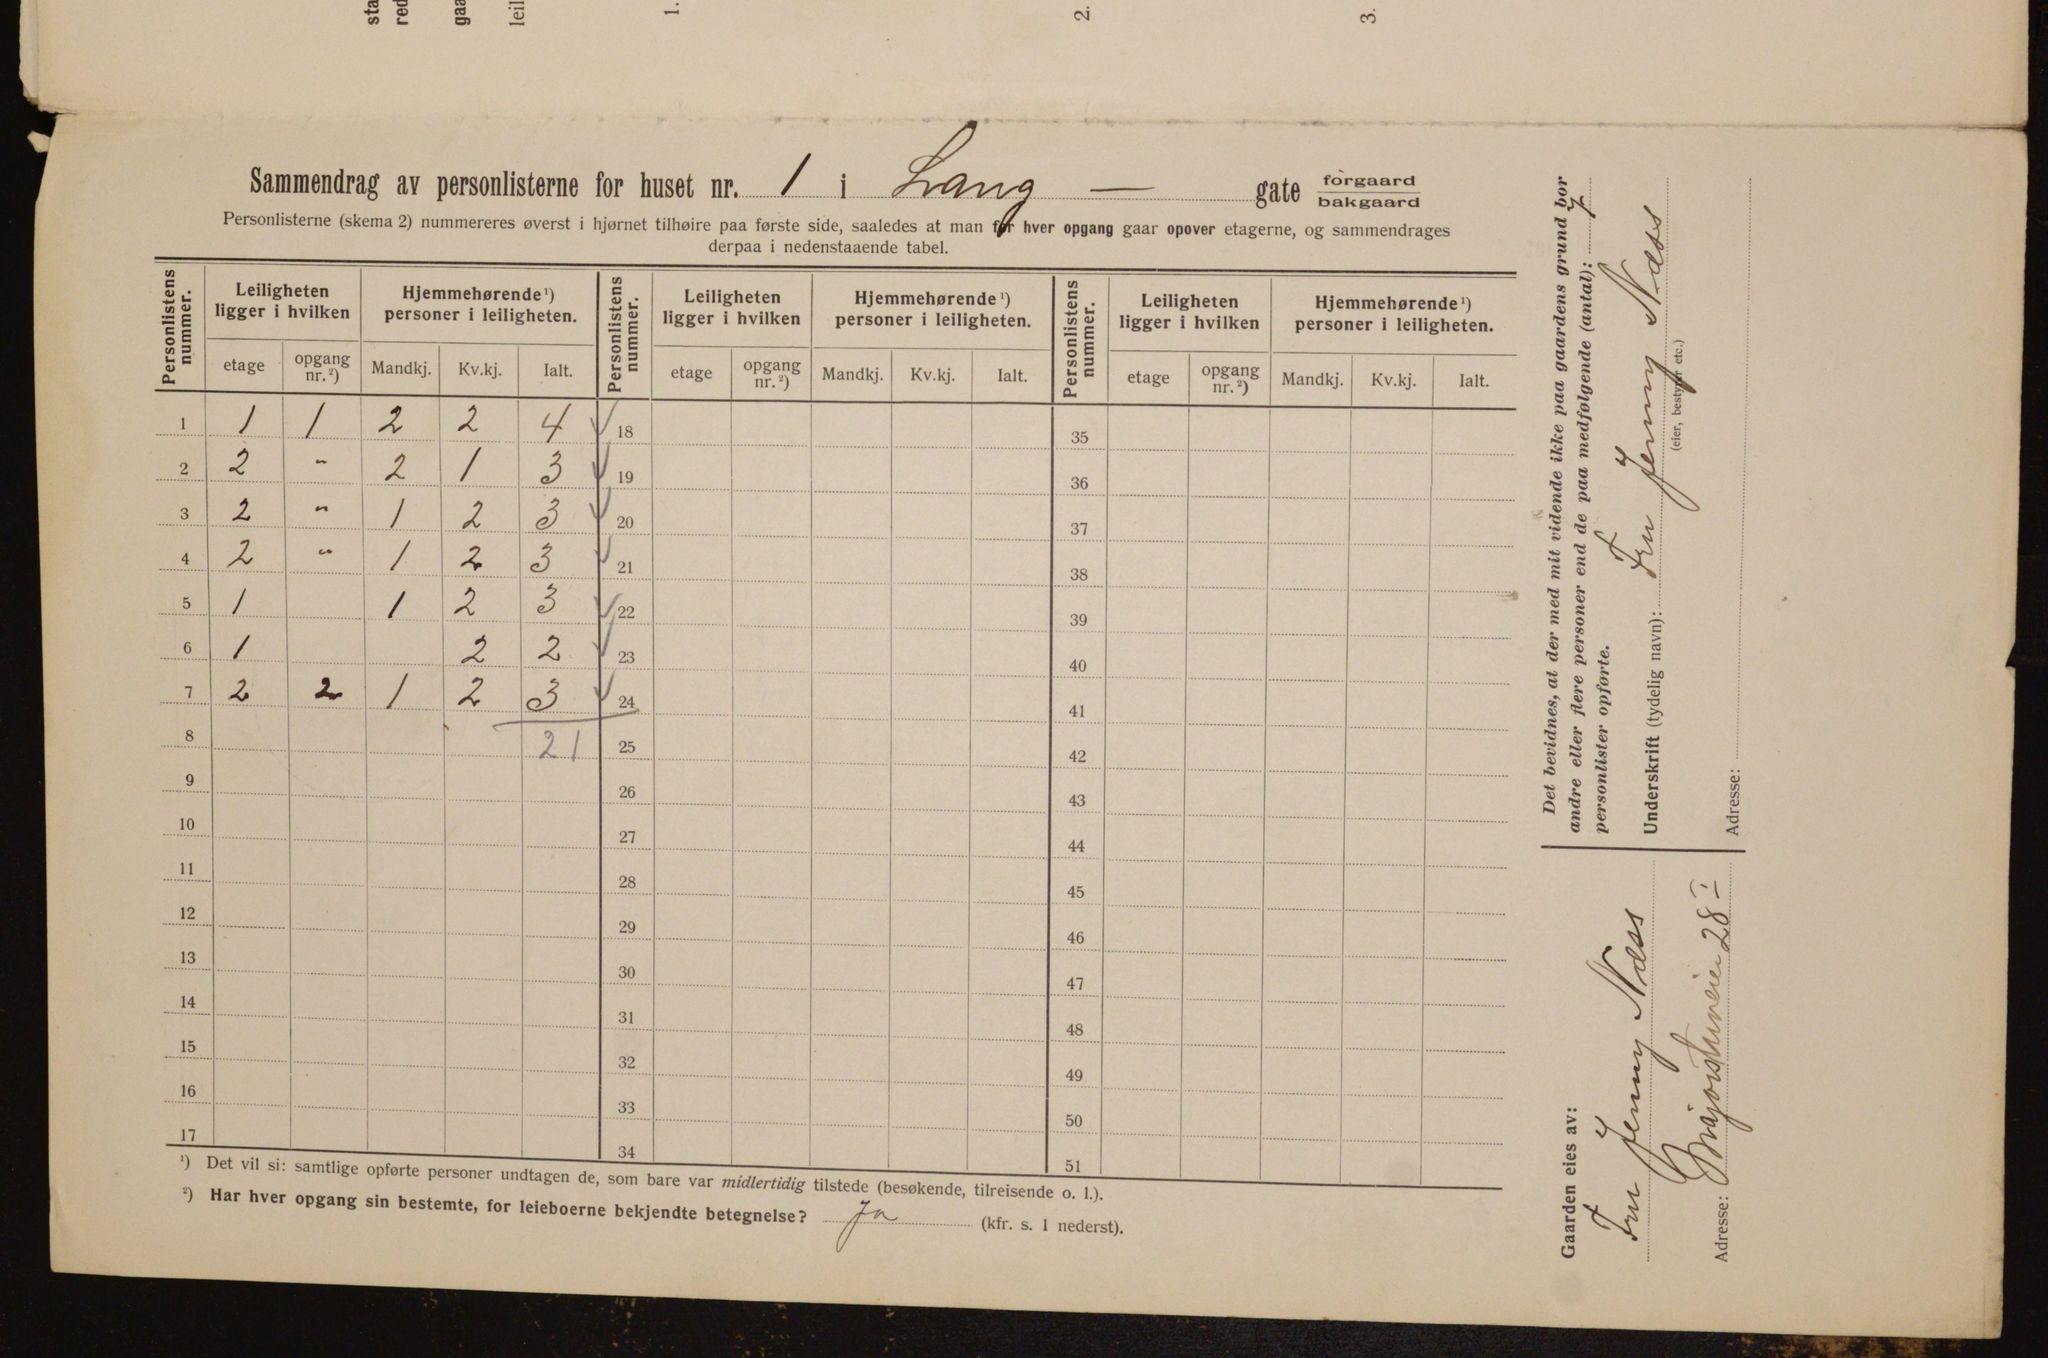 sta
red
gaa
leil
1.
2.
3.
Sammendrag av personlisterne for huset nr. 1 i Lang — gate forgaard bakgaard
Personlisterne (skema 2) nummereres øverst i hjørnet tilhøire paa første side, saaledes at man for hver opgang gaar opover etagerne, og sammendrages
derpaa i nedenstaaende tabel.
Personlistens nummer. Leiligheten ligger i hvilken Hjemmehørende ¹) personer i leiligheten. Personlistens nummer. Leiligheten ligger i hvilken Hjemmehørende ¹) personer i leiligheten. Personlistens nummer. Leiligheten ligger i hvilken Hjemmehørende ¹) personer i leiligheten.
etage opgang nr. ²) Mandkj. Kv.kj. Ialt. etage opgang nr. ²) Mandkj. Kv.kj. Ialt. etage opgang nr. ²) Mandkj. Kv.kj. Ialt.
1 1 1 2 2 4 ✓ 18 35
2 2 " 2 1 3 ✓ 19 36
3 2 " 1 2 3 ✓ 20 37
4 2 " 1 2 3 ✓ 21 38
5 1 1 2 3 ✓ 22 39
6 1 2 2 ✓ 23 40
7 2 2 1 2 3 ✓ 24 41
8 21 25 42
9 26 43
10 27 44
11 28 45
12 29 46
13 30 47
14 31 48
15 32 49
16 33 50
17 34 51
¹) Det vil si: samtlige opførte personer undtagen de, som bare var midlertidig tilstede (besøkende, tilreisende o. l.).
²) Har hver opgang sin bestemte, for leieboerne bekjendte betegnelse? Ja (kfr. s. 1 nederst).
Det bevidnes, at der med mit vidende ikke paa gaardens grund bor
andre eller flere personer end de paa medfølgende (antal): 7
personlister opførte.
Underskrift (tydelig navn): Fru Jenny Næss
(eier, bestyrer etc.)
Adresse:
Gaarden eies av:
Fru Jenny Næss
Adresse: Majorstuveien 28 I